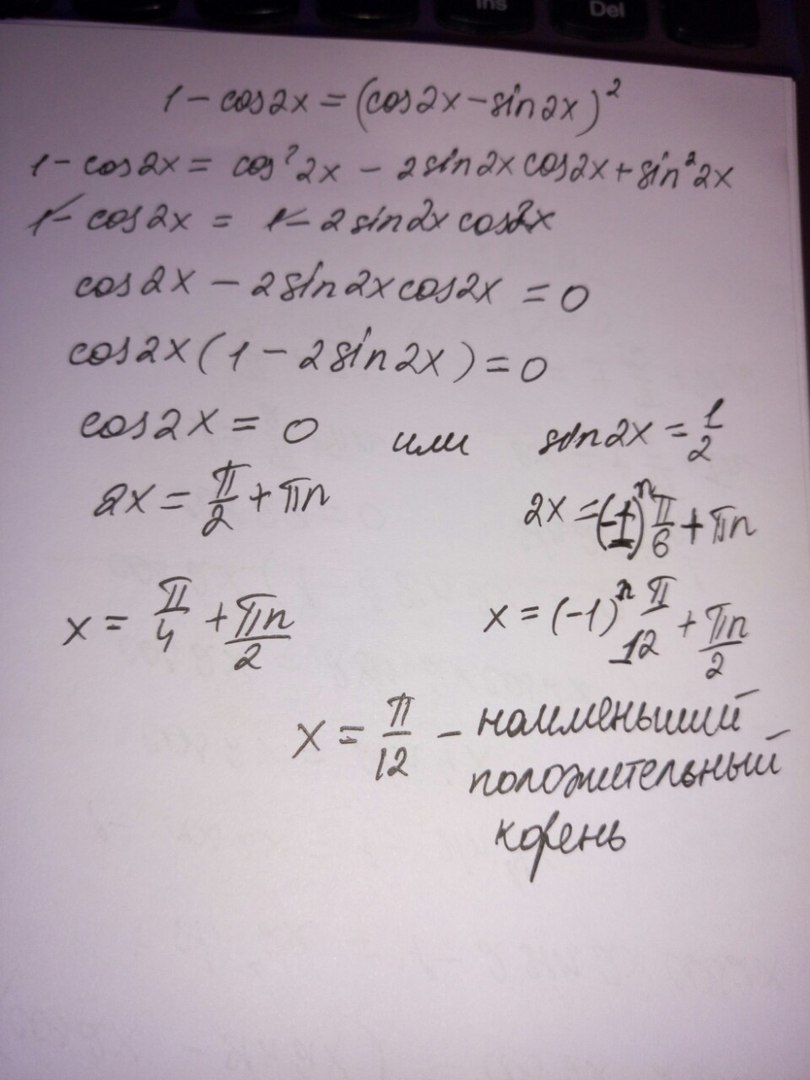 Ins Del
1 - cos2x = (cos2x - sin2x)²
1 - cos2x = cos²2x - 2sin2x cos2x + sin²2x
1 - cos2x = 1 - 2sin2x cos2x
cos2x - 2sin2x cos2x = 0
cos2x(1 - 2sin2x) = 0
cos2x = 0 или sin2x = 1/2
2x = π/2 + πn 2x = (-1)ⁿ π/6 + πn
x = π/4 + πn/2 x = (-1)ⁿ π/12 + πn/2
x = π/12 - наименьший
положительный
корень